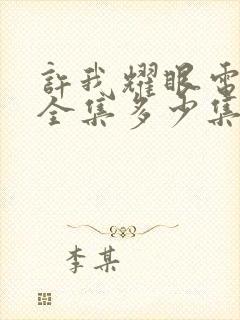 許我耀眼電
全集多少集
李某